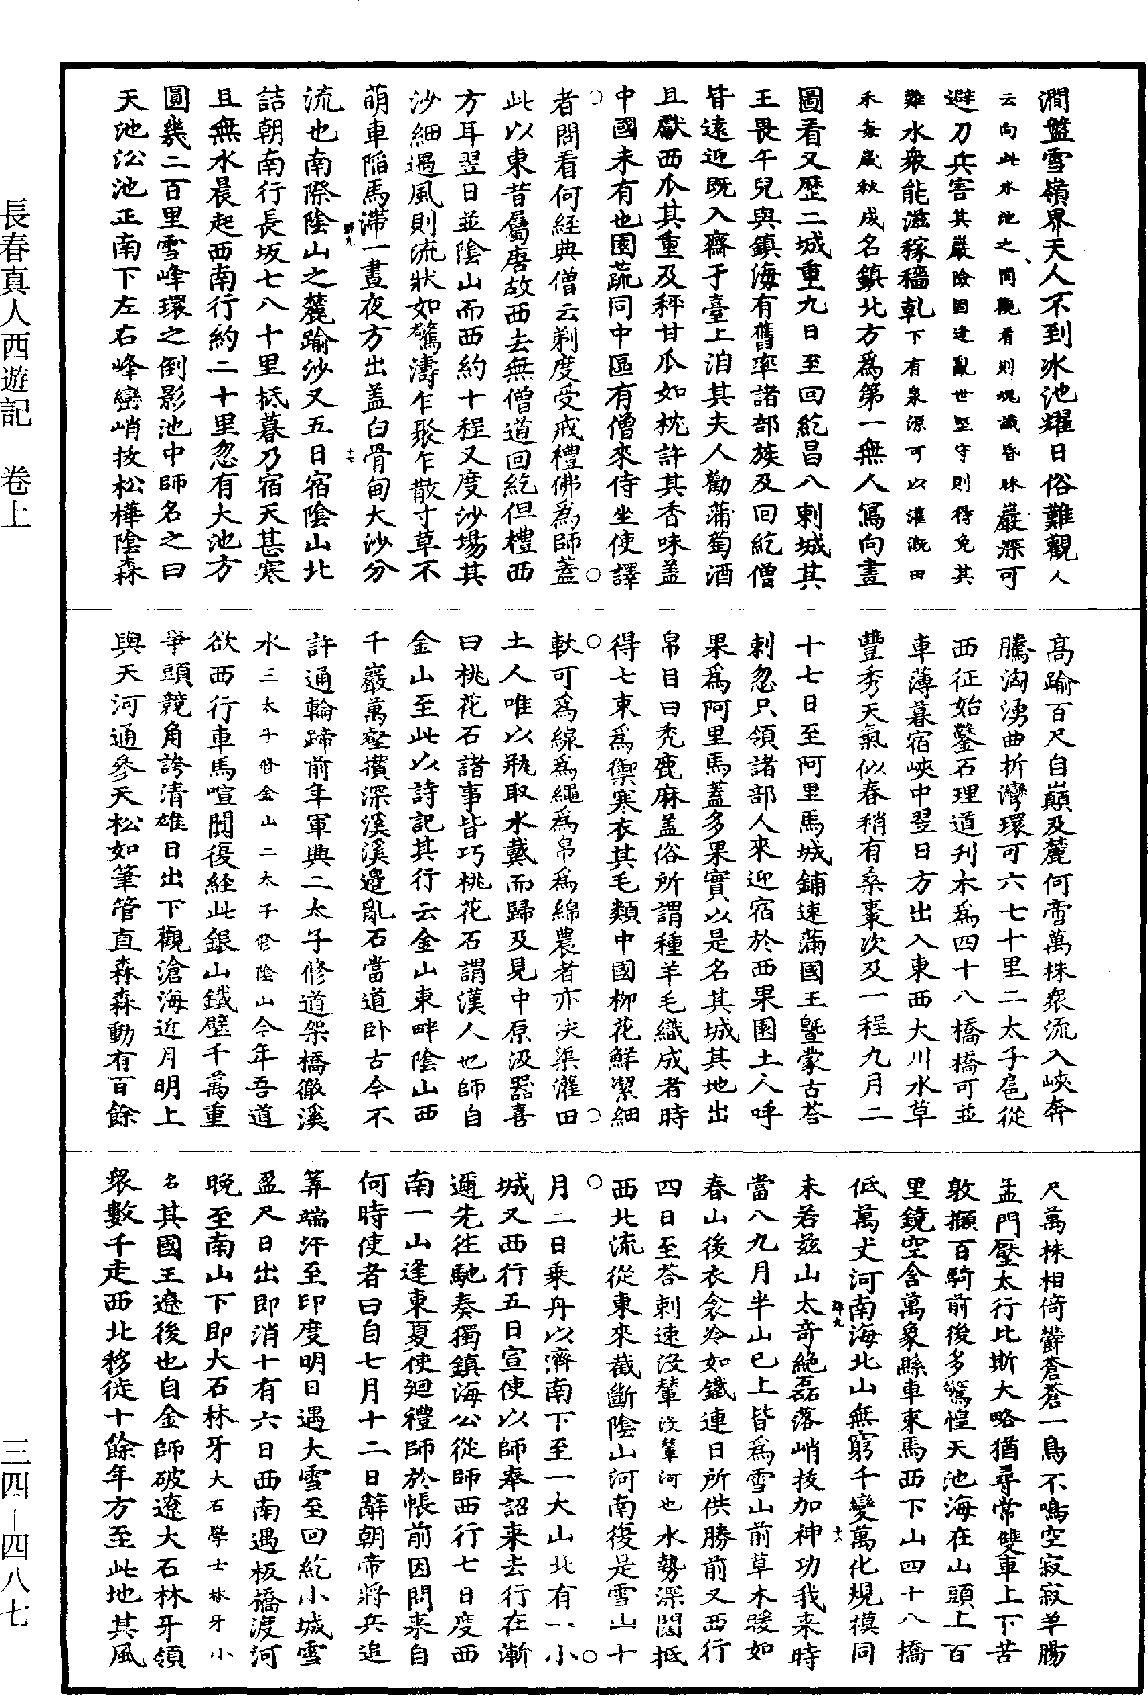 澗盤雪嶺界天人不到氷池耀日俗難觀人
云向此水池之間觀看則魂識昏昧巖深可
避刀兵害其巖險固逢亂世堅守則得免其
難水衆能滋稼穡乾下有泉源可以灌溉田
禾每歲秋成名鎮北方爲第一無人寫向畫
圖看又歷二城重九日至回紇昌八剌城其
王畏午兒與鎮海有舊率諸部族及回紇僧
皆遠迎既入齋于臺上洎其夫人勸蒲萄酒
且獻西瓜其重及秤甘瓜如枕許其香味盖
中國未有也園蔬同中區有僧來侍坐使譯
者問看何經典僧云剃度受戒禮佛為師蓋
此以東昔屬唐故西去無僧道回紇但禮西
方耳翌日並陰山而西約十程又度沙場其
沙細遇風則流狀如驚濤乍聚乍散寸草不
萌車陷馬滯一晝夜方出盖白骨甸大沙分
流也南際陰山之麓踰沙又五日宿陰山北
詰朝南行長坂七八十里抵暮乃宿天甚寒
且無水晨起西南行約二十里忽有大池方
圓幾二百里雪峰環之倒影池中師名之曰
天池沿池正南下左右峰巒峭拔松樺陰森
高踰百尺自巔及麓何啻萬株衆流入峽奔
騰洶湧曲折灣環可六七十里二太子扈從
西征始鑿石理道刋木爲四十八橋橋可並
車薄暮宿峽中翌日方出入東西大川水草
豐秀天氣似春稍有桑棗次及一程九月二
十七日至阿里馬城鋪速滿國王曁蒙古荅
剌忽只領諸部人來迎宿於西果園土人呼
果爲阿里馬蓋多果實以是名其城其地出
帛目曰禿鹿麻盖俗所謂種羊毛織成者時
得七束爲禦寒衣其毛類中國柳花鮮潔細
軟可爲線爲繩爲帛爲綿農者亦决渠灌田
土人唯以瓶取水戴而歸及見中原汲器喜
曰桃花石諸事皆巧桃花石謂漢人也師自
金山至此以詩記其行云金山東畔陰山西
千巖萬壑攅深溪溪邊亂石當道卧古今不
許通輪蹄前年軍興二太子修道架橋徹溪
水三太子修金山二太子修陰山今年吾道
欲西行車馬喧闐復經此銀山鐵壁千萬重
爭頭競角誇清雄日出下觀滄海近月明上
與天河通參天松如筆管直森森動有百餘
尺萬株相倚鬱蒼蒼一鳥不鳴空寂寂羊腸
孟門壓太行比斯大略猶尋常雙車上下苦
敦攧百騎前後多驚惶天池海在山頭上百
里鏡空含萬象縣車束馬西下山四十八橋
低萬丈河南海北山無窮千變萬化規模同
未若茲山太奇絶磊落峭拔加神功我來時
當八九月半山已上皆爲雪山前草木暖如
春山後衣衾冷如鐵連日所供勝前又西行
四日至荅剌速没輦没輦河也水勢深闊抵
西北流從東來截斷陰山河南復是雪山十
月二日乘舟以濟南下至一大山北有一小
城又西行五日宣使以師奉詔來去行在漸
邇先往馳奏獨鎮海公從師西行七日度西
南一山逢東夏使廻禮師於帳前因問來自
何時使者曰自七月十二日辭朝帝將兵追
筭端汗至印度明日遇大雪至回紇小城雪
盈尺日出即消十有六日西南過板橋渡河
晚至南山下即大石林牙大石學士林牙小
名其國王遼後也自金師破遼大石林牙領
衆數千走西北移徙十餘年方至此地其風
長春真人西遊記 卷上
三四—四八七